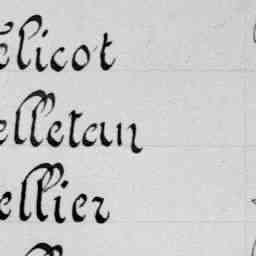 elicot
elletan
ellier